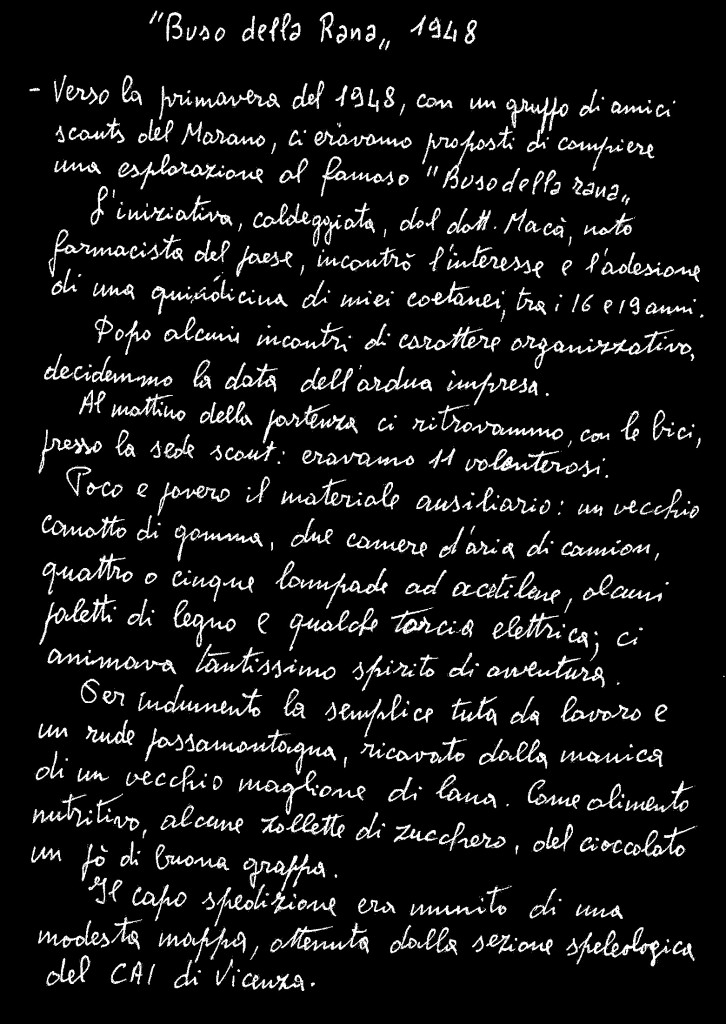 "Buso della Rana„ 1948
- Verso la primavera del 1948, con un gruppo di amici
scouts del Marano, ci eravamo proposti di compiere
una esplorazione al famoso "Buso della rana„
L'iniziativa, caldeggiata, dal dott. Macà, noto
farmacista del paese, incontrò l'interesse e l'adesione
di una quindicina di miei coetanei, tra i 16 e 19 anni.
Dopo alcuni incontri di carattere organizzativo,
decidemmo la data dell'ardua impresa.
Al mattino della partenza ci ritrovammo, con le bici,
presso la sede scout: eravamo 11 volonterosi.
Poco e povero il materiale ausiliario: un vecchio
canotto di gomma, due camere d'aria di camion,
quattro o cinque lampade ad acetilene, alcuni
paletti di legno e qualche torcia elettrica; ci
animava tantissimo spirito di avventura.
Per indumento la semplice tuta da lavoro e
un rude passamontagna, ricavato dalla manica
di un vecchio maglione di lana. Come alimento
nutritivo, alcune zollette di zucchero, del cioccolato
un pò di buona grappa.
Il capo spedizione era munito di una
modesta mappa, ottenuta dalla sezione speleologica
del CAI di Vicenza.